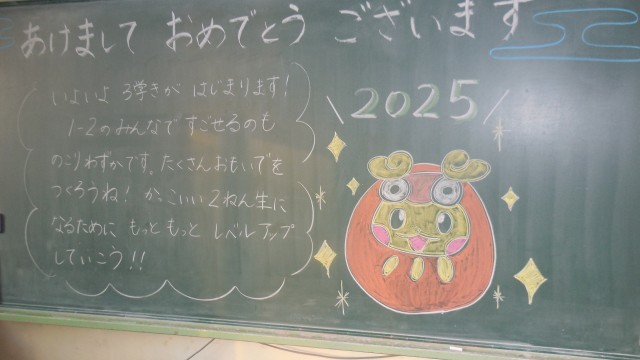 あけまして おめでとう ございます
いよいよ 3学きが はじまります!
1-2のみんなで すごせるのも
のこりわずかです。たくさんおもいでを
つくろうね! かっこいい2ねん生に
なるために もっともっと レベルアップ
していこう!!
\2025/